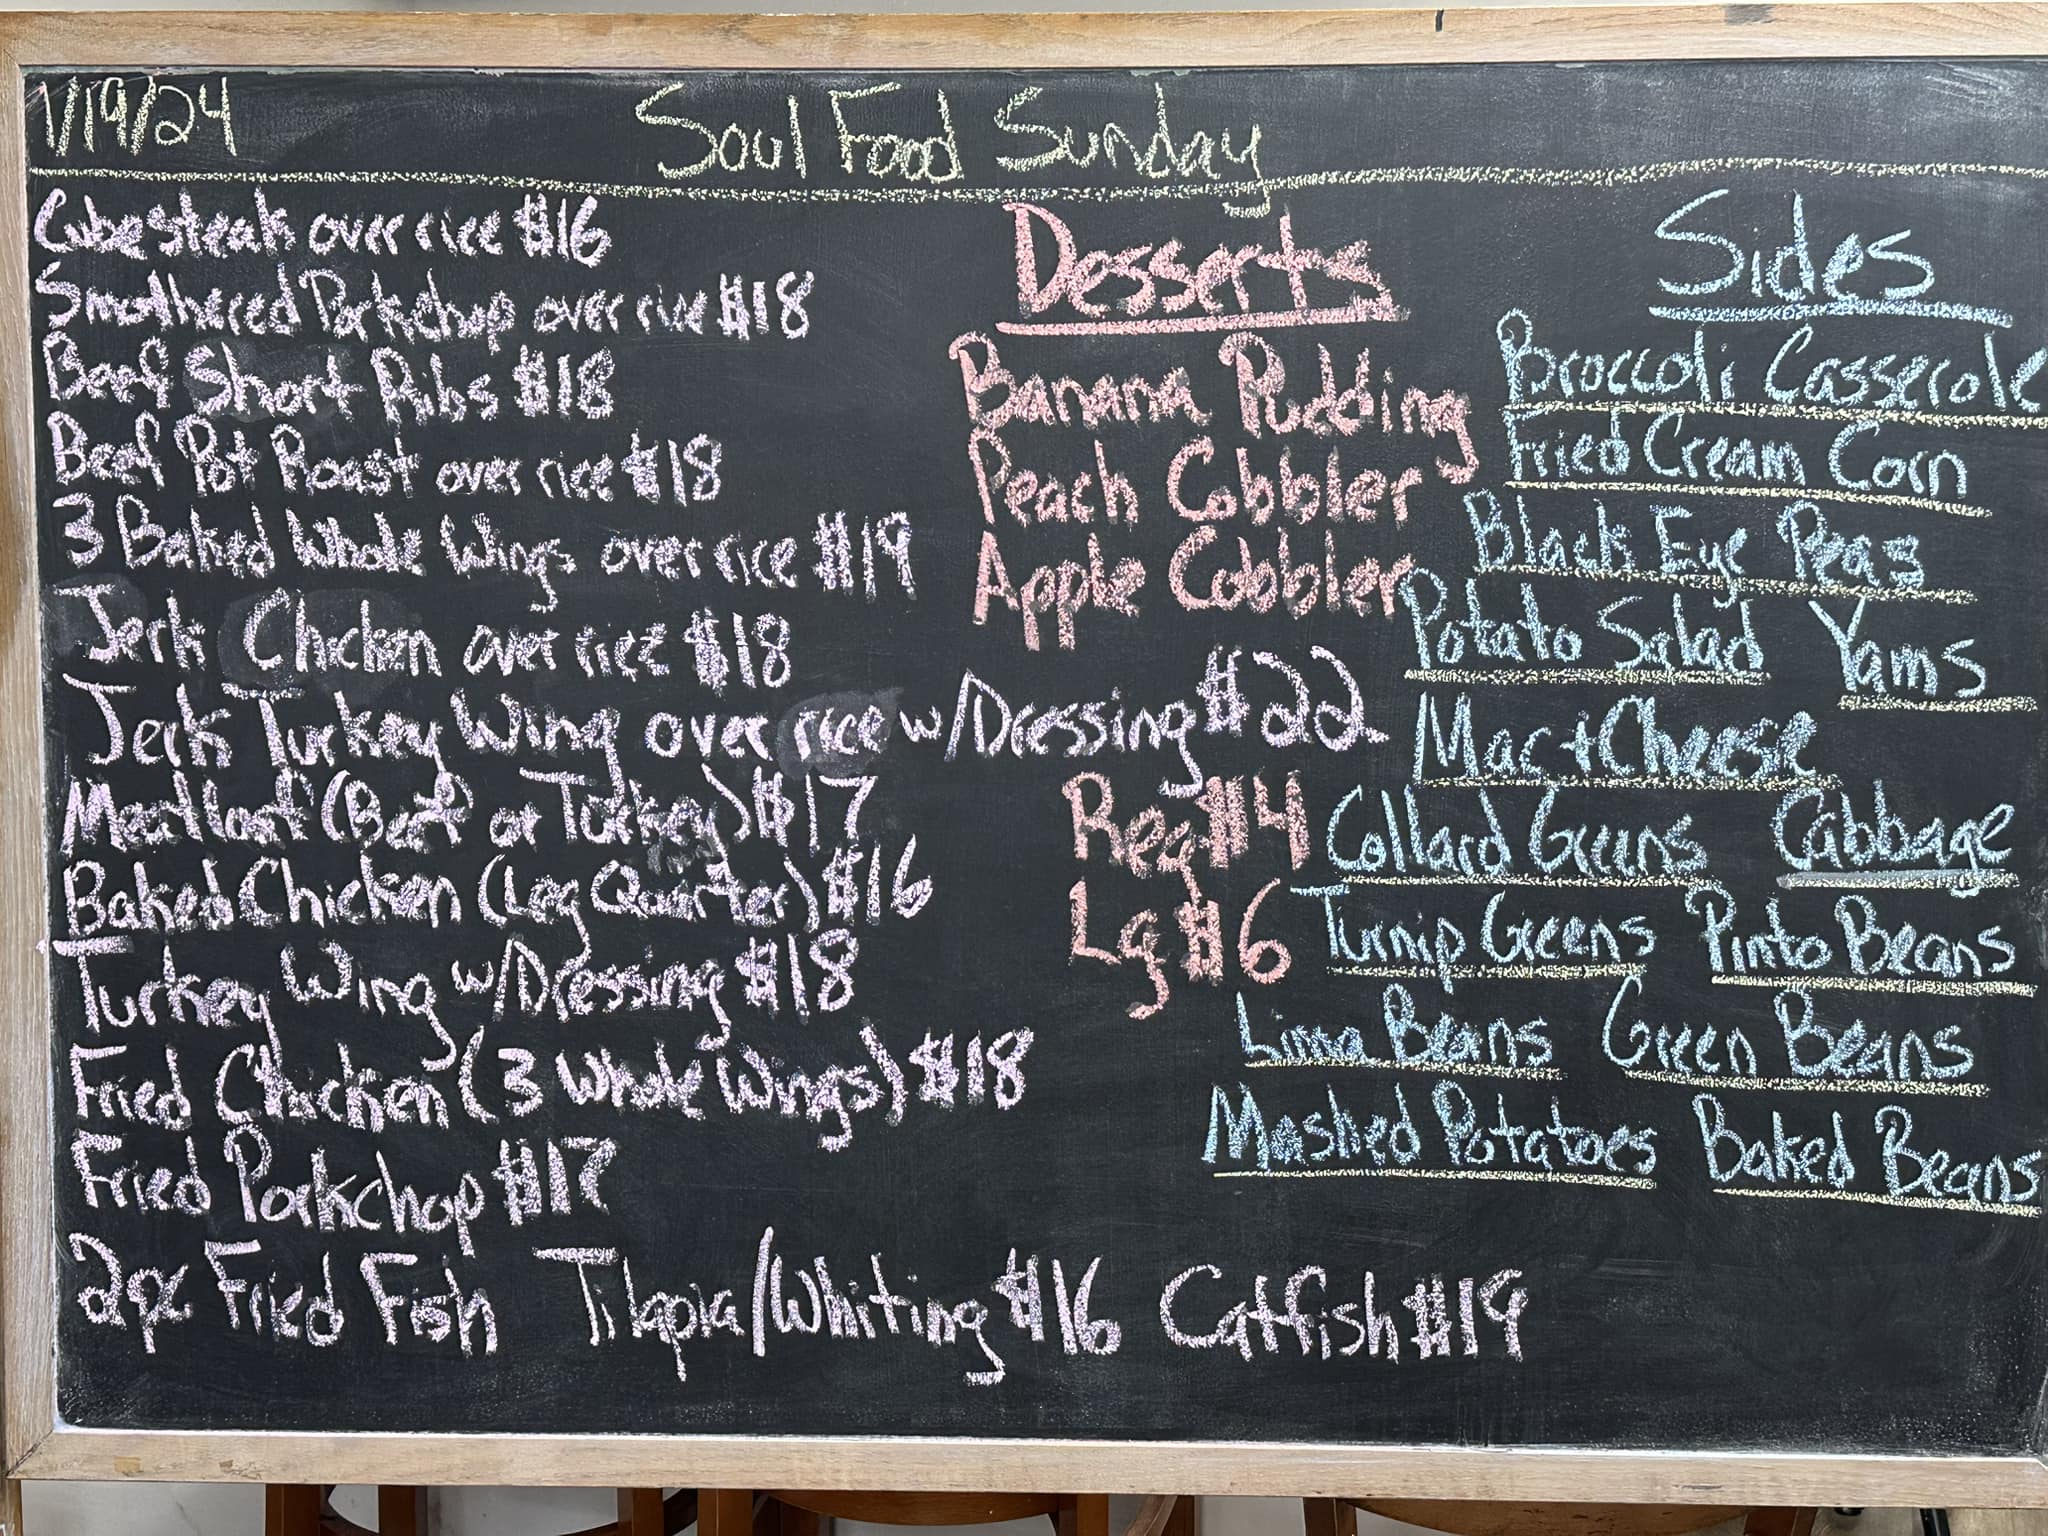 1/19/24
Soul Food Sunday
Cubesteak over rice $16
Smothered Porkchop over rice $18
Beef Short Ribs $18
Beef Pot Roast over rice $18
3 Baked Whole Wings over rice $19
Jerk Chicken over rice $18
Jerk Turkey Wing over rice w/Dressing $22
Meatloaf (Beef or Turkey) $17
Baked Chicken (Leg Quarter) $16
Turkey Wing w/Dressing $18
Fried Chicken (3 Whole Wings) $18
Fried Porkchop $17
2pc Fried Fish Tilapia/Whiting $16 Catfish $19
Desserts
Banana Pudding
Peach Cobbler
Apple Cobbler
Reg $4
Lg $6
Sides
Broccoli Casserole
Fried Cream Corn
Black Eye Peas
Potato Salad Yams
Mac+Cheese
Collard Greens Cabbage
Turnip Greens Pinto Beans
Lima Beans Green Beans
Mashed Potatoes Baked Beans